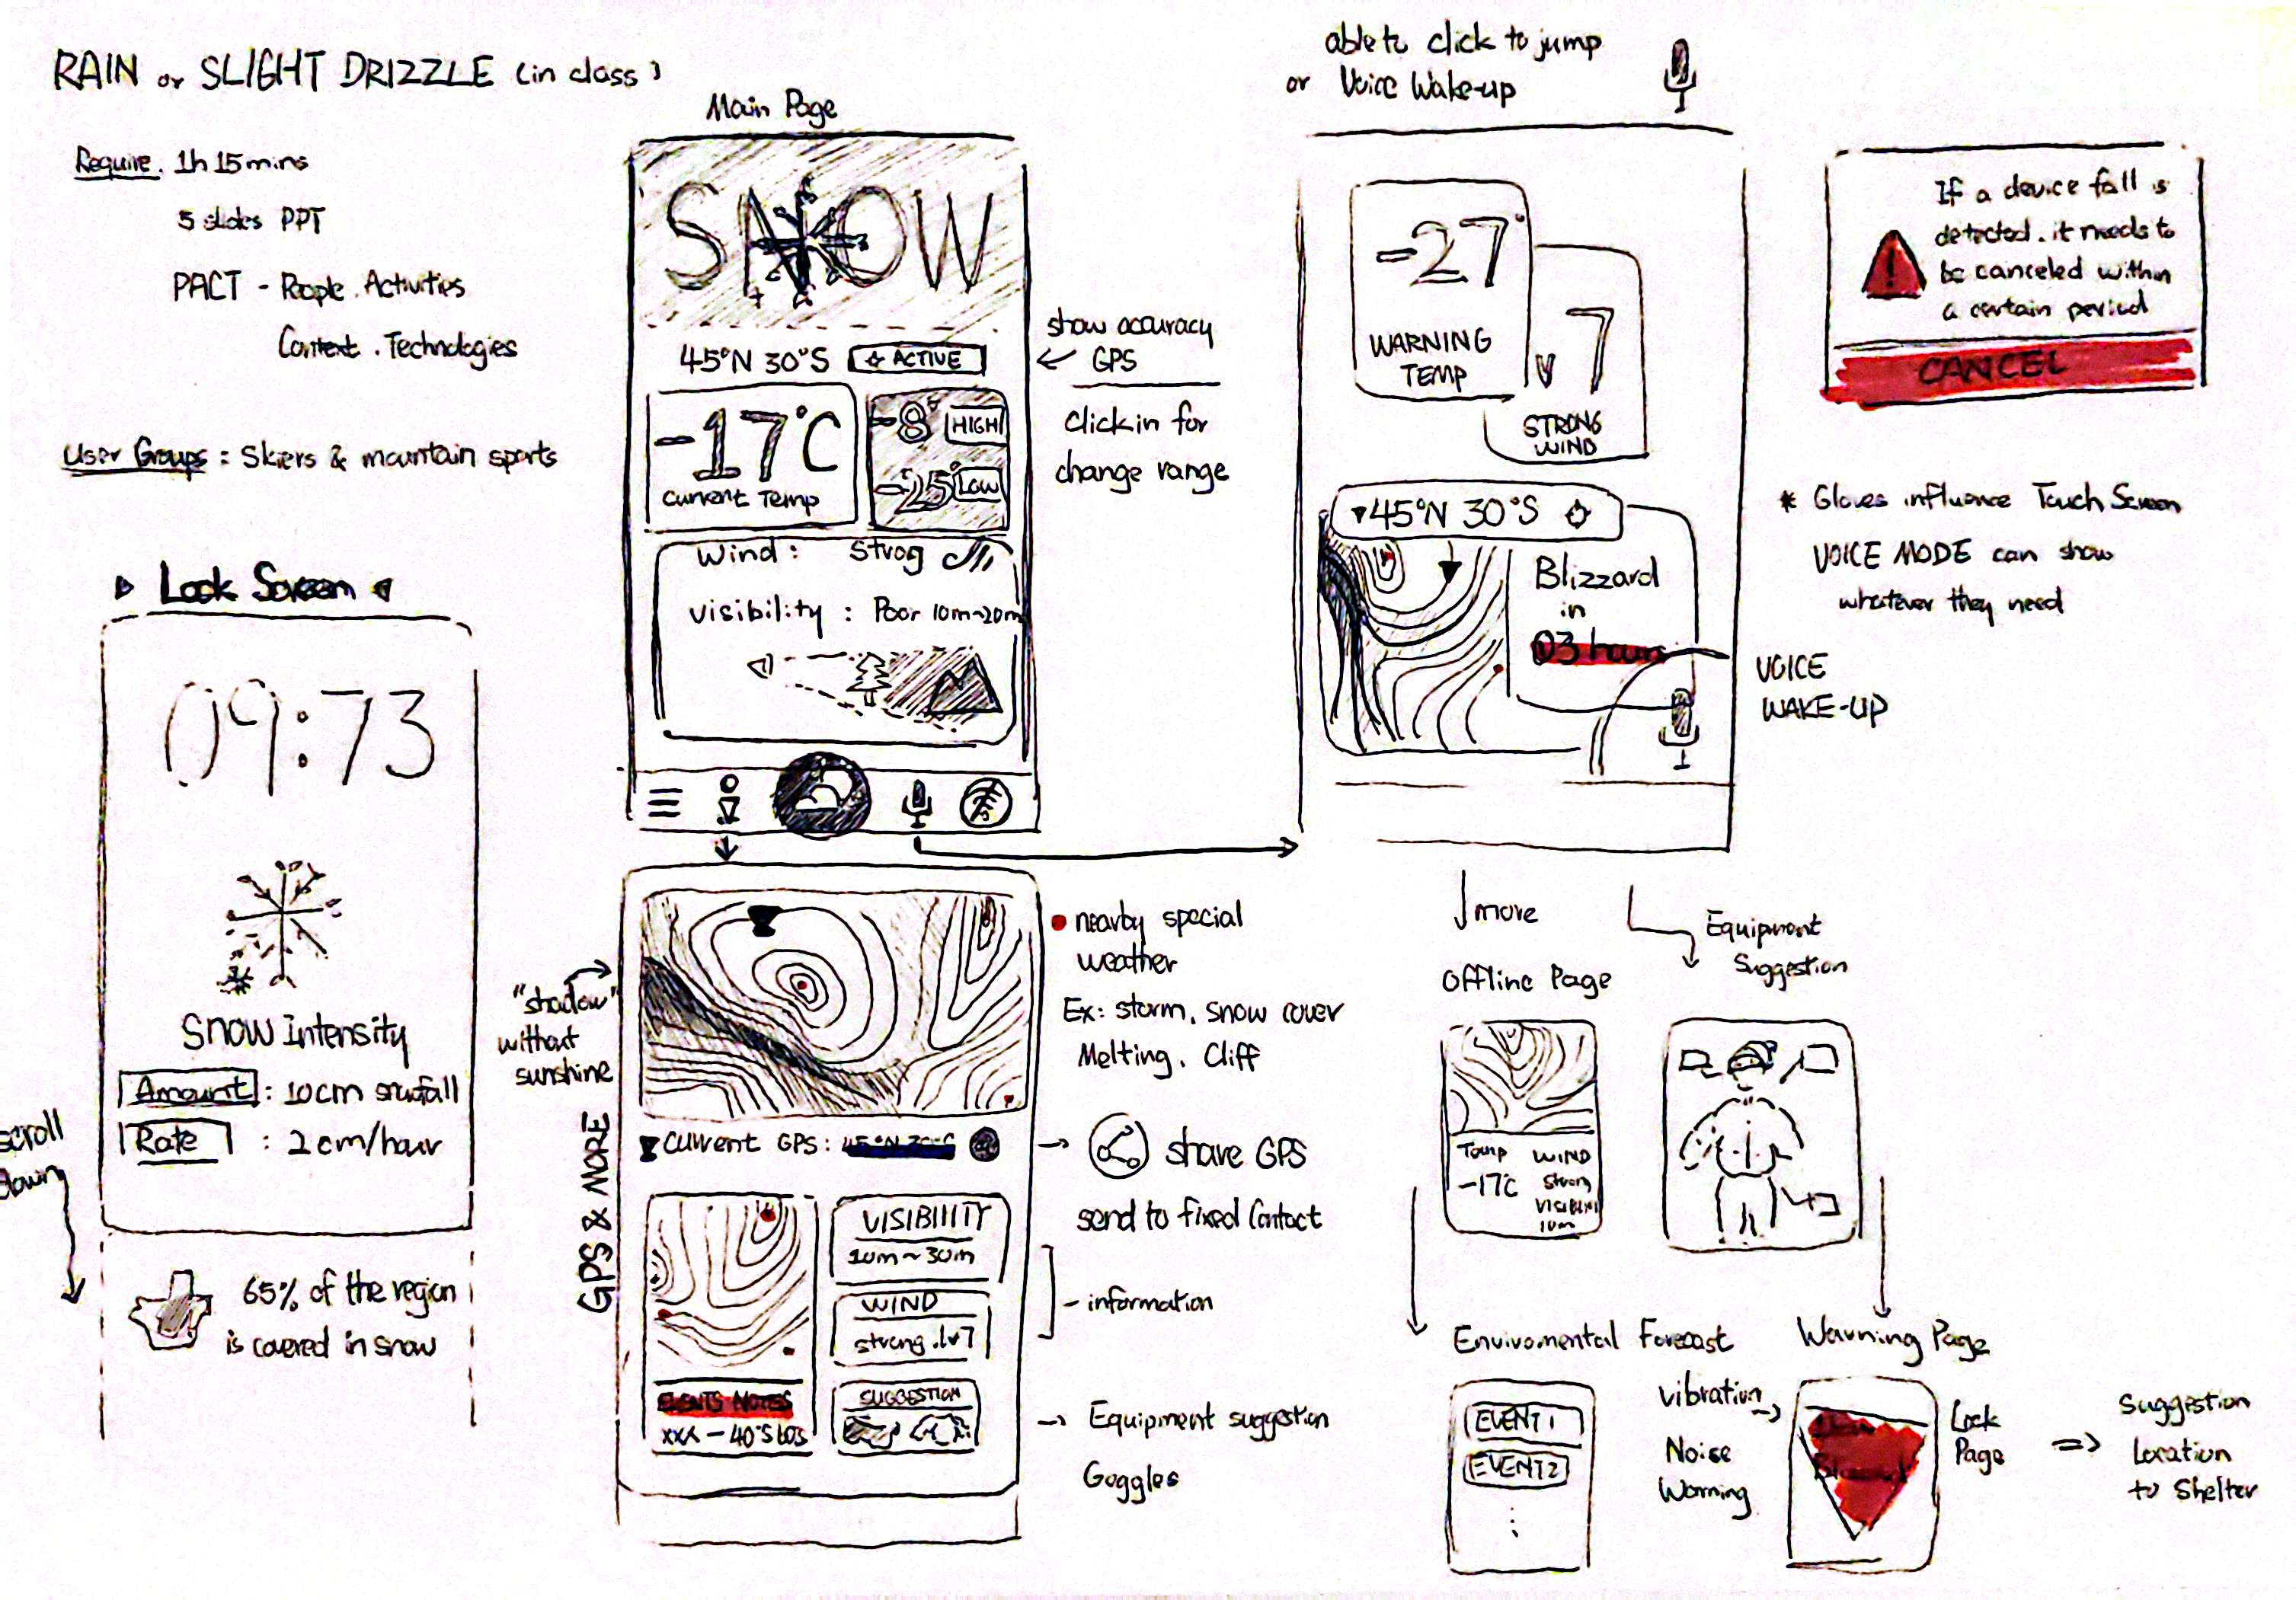 RAIN or SLIGHT DRIZZLE (in class)
Require. 1h 15mins
5 slides PPT
PACT - People. Activities
Context. Technologies
User Groups: Skiers & mountain sports
Lock Screen
09:73
Snow Intensity
Amount: 10cm snowfall
Rate : 2cm/hour
scroll
down
65% of the region
is covered in snow
Main Page
SNOW
45°N 30°S ACTIVE
-17°C
Current Temp
-8° HIGH
-25° LOW
Wind: Strog
Visibility: Poor 10m~20m
show accuracy
GPS
click in for
change range
"shadow"
without
sunshine
GPS & MORE
Current GPS:
EVENTS NOTES
VISIBIIITY
10m~30m
WIND
strong.lv7
SUGGESTION
nearby special
weather
Ex: storm, snow cover
Melting. Cliff
share GPS
send to fixed Contact
- information
Equipment suggestion
Goggles
able to click to jump
or Voice Wake-up
-27°
WARNING
TEMP
7
STRONG
WIND
45°N 30°S
Blizzard
in
03 hours
VOICE
WAKE-UP
If a device fall is
detected. it needs to
be canceled within
a certain period
CANCEL
* Gloves influence Touch Screen
VOICE MODE can show
whatever they need
more
Offline Page
Temp
-17°C
WIND
Strong
10m
Equipment
Suggestion
Enviromental Forecast
EVENT1
EVENT2
Warning Page
Vibration
Noise
Warning
Lock
Page
Suggestion
Location
to Shelter